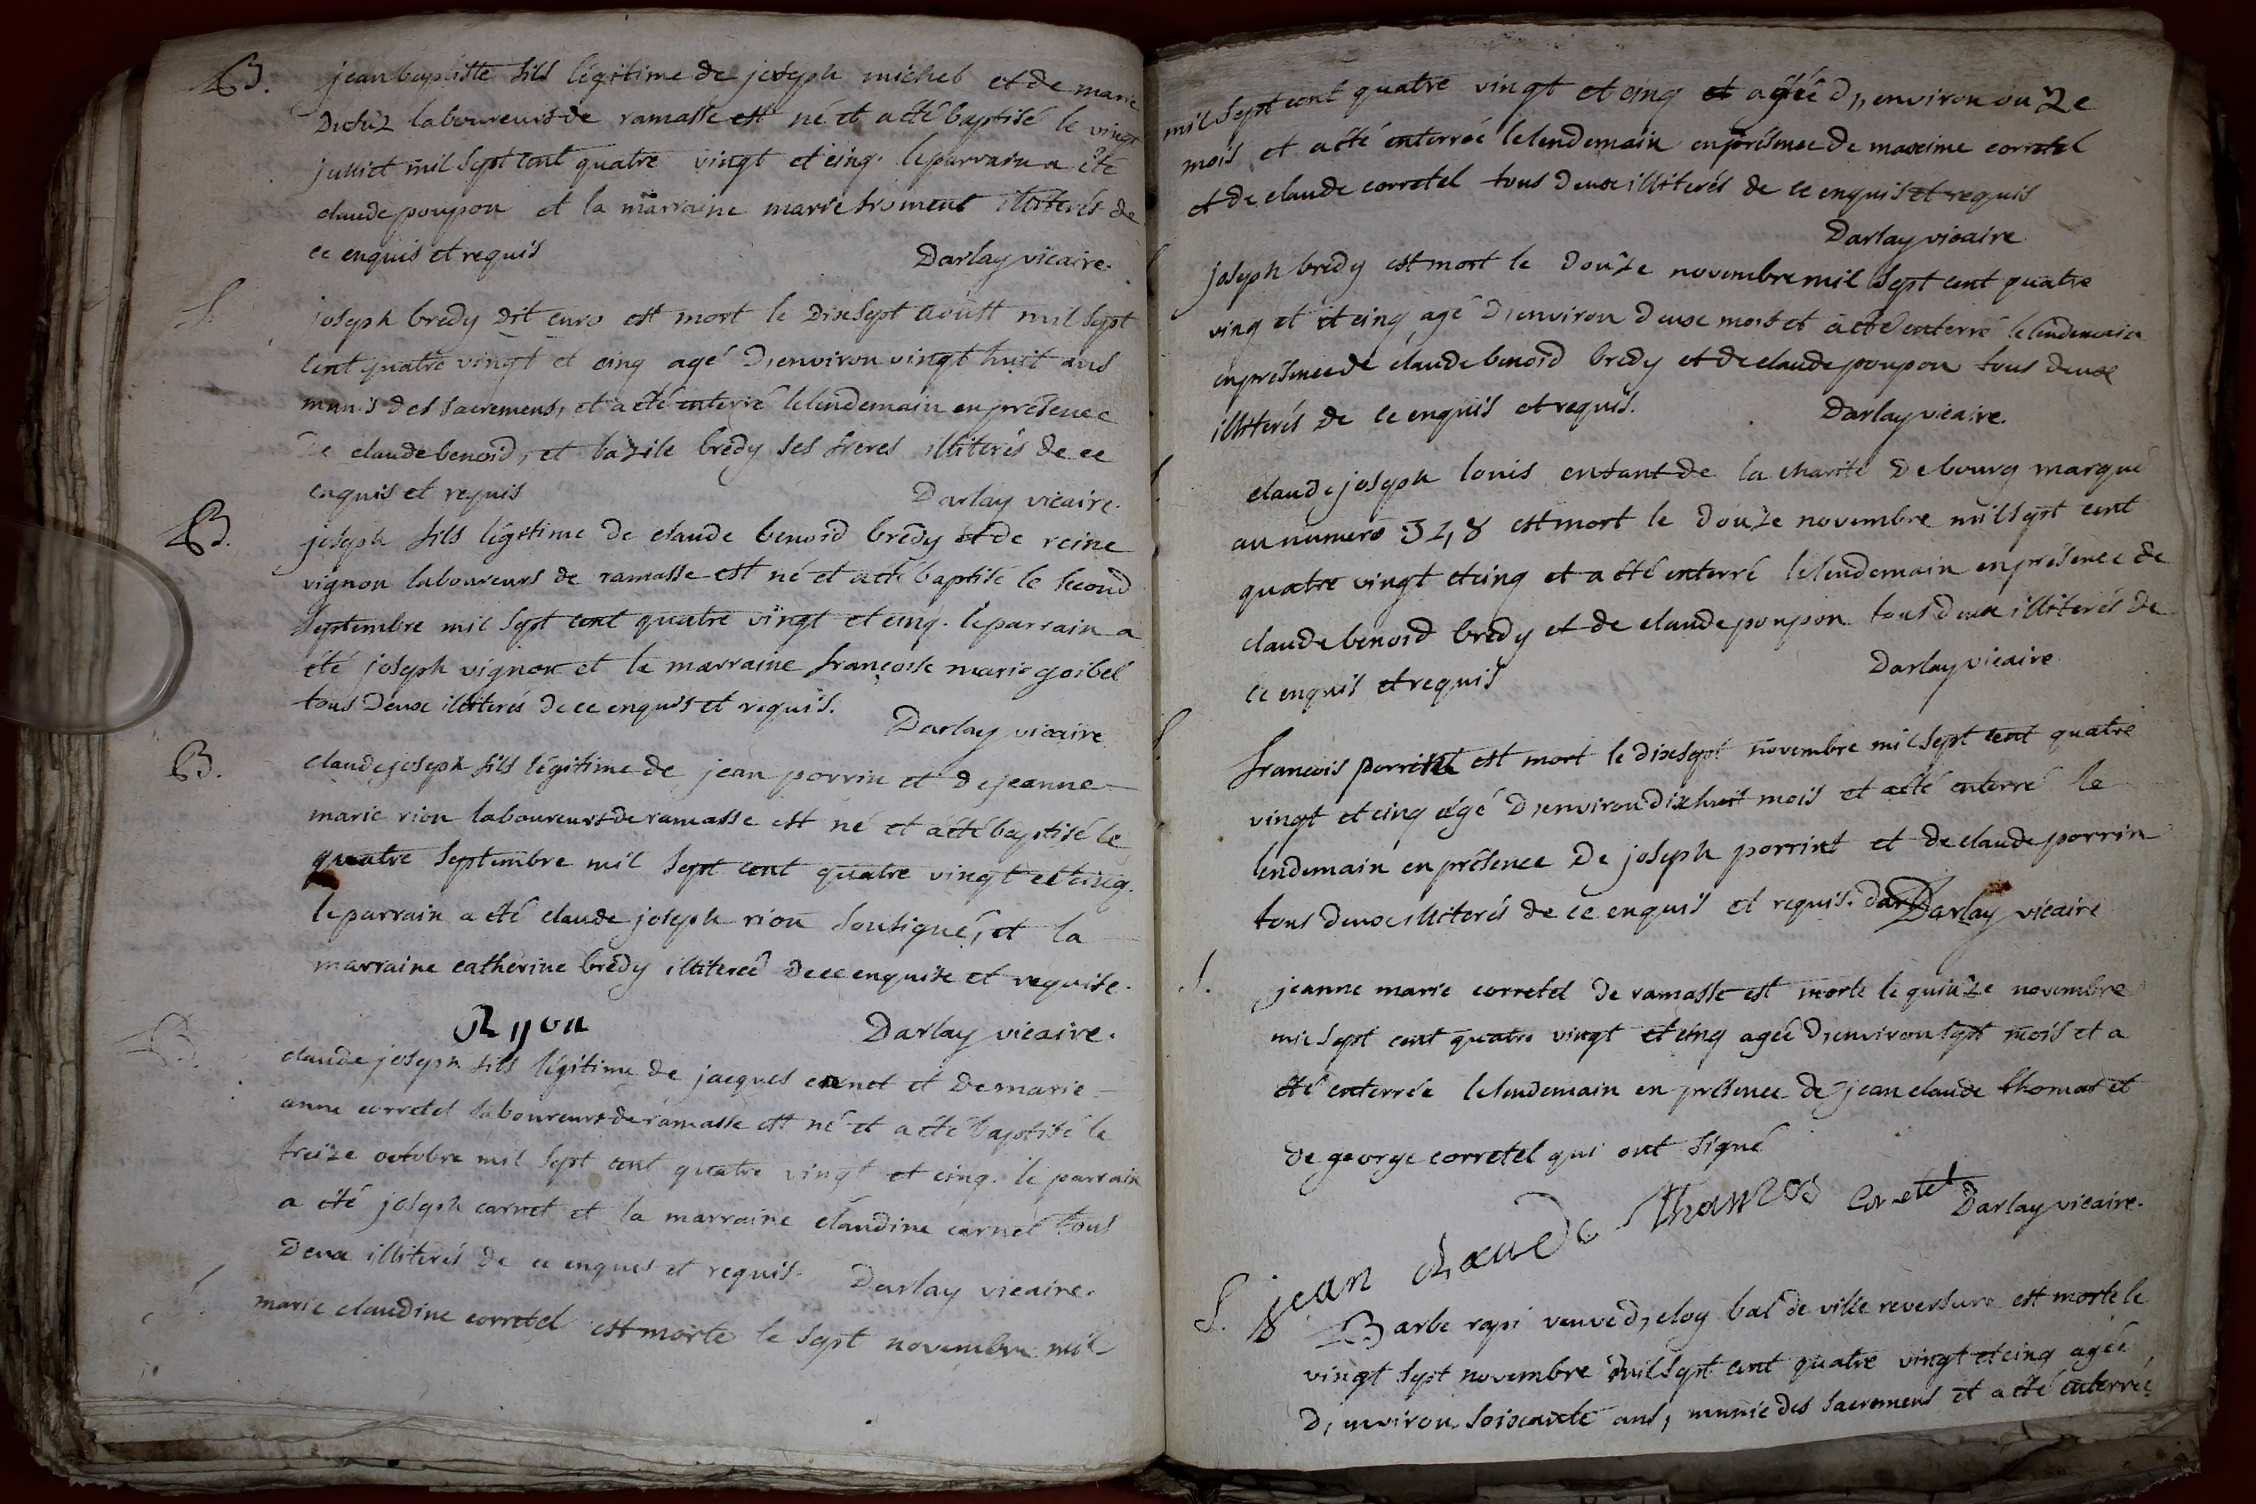 B. jean baptiste fils légitime de joseph michel et de marie
laboureurs de ramasse est né et a été baptisé le vingt
juillet mil sept cent quatre vingt et cinq. le parrain a été
claude poupon et la marraine marie froment illiterés de
ce enquis et requis Darlay vicaire.
S. joseph bredy dit curo est mort le dixsept aoust mil sept
cent quatre vingt et cinq agé d,environ vingt huit ans
munis des sacremens, et a été enterré le lendemain en présence
De claude benoid, et bazile bredy ses freres illiterés de ce
enquis et requis Darlay vicaire.
B. joseph fils légitime de claude benoid bredy et de reine
vignon laboureurs de ramasse est né et a été baptisé le second
septembre mil sept cent quatre vingt et cinq. le parrain a
été joseph vignon et la marraine françoise marie goibel
tous deux illiterés de ce enquis et requis.
Darlay vicaire
B. claude joseph fils légitime de jean porrin et de jeanne
marie rion laboureurs de ramasse est né et a été baptisé le
quatre septembre mil sept cent quatre vingt et cinq.
le parrain a été claude joseph rion soussigné, et la
marraine catherine bredy illiterée de ce enquise et requise.
Ryon Darlay vicaire.
B. claude joseph fils légitime de jacques canet et de marie
anne corretel laboureurs de ramasse est né et a été baptisé le
treize octobre mil sept cent quatre vingt et cinq. le parrain
a été joseph carnet et la marraine claudine carnet tous
Deux illiterés de ce enquis et requis. Darlay vicaire.
S. marie claudine corretel est morte le sept novembre mil
mil sept cent quatre vingt et cinq et agée d,environ onze
mois et a été enterrée le lendemain en présence de maxime corretel
et de claude corretel tous deux illiterés de ce enquis et requis
Darlay vicaire
S. joseph bredy est mort le douze novembre mil sept cent quatre
ving et et cinq agé d,environ deux mois et a été enterré le lendemain
en présence de claude benoid bredy et de claude poupon tous deux
illiterés de ce enquis et requis. Darlay vicaire.
S. claude joseph louis enfant de la charité de bourg marqué
au numero est mort le douze novembre mil sept cent
quatre vingt et cinq et a été enterré le lendemain en présence de
claude benoid bredy et de claude poupon tous deux illiterés de
ce enquis et requis Darlay vicaire
S. francois porrint est mort le dixsept novembre mil sept cent quatre
vingt et cinq agé d,environ dixhuit mois et a été enterré le
lendemain en présence de joseph porrint et de claude porrin
tous deux illiterés de ce enquis et requis. dar Darlay vicaire
S. jeanne marie corretel de ramasse est morte le quinze novembre
mil sept cent quatre vingt et cinq agée d,environ sept mois et a
été enterrée le lendemain en présence de jean claude thomas et
de george corretel qui ont signé
jean claude thomas Corretel Darlay vicaire.
S. Barbe rapi veuve d,eloy bal de ville reversure est morte le
vingt sept novembre mil sept cent quatre vingt et cinq agée
d,environ soixante ans, munie des sacremens et a été enterrée